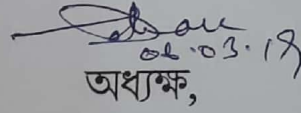 06.03.19
অধ্যক্ষ,